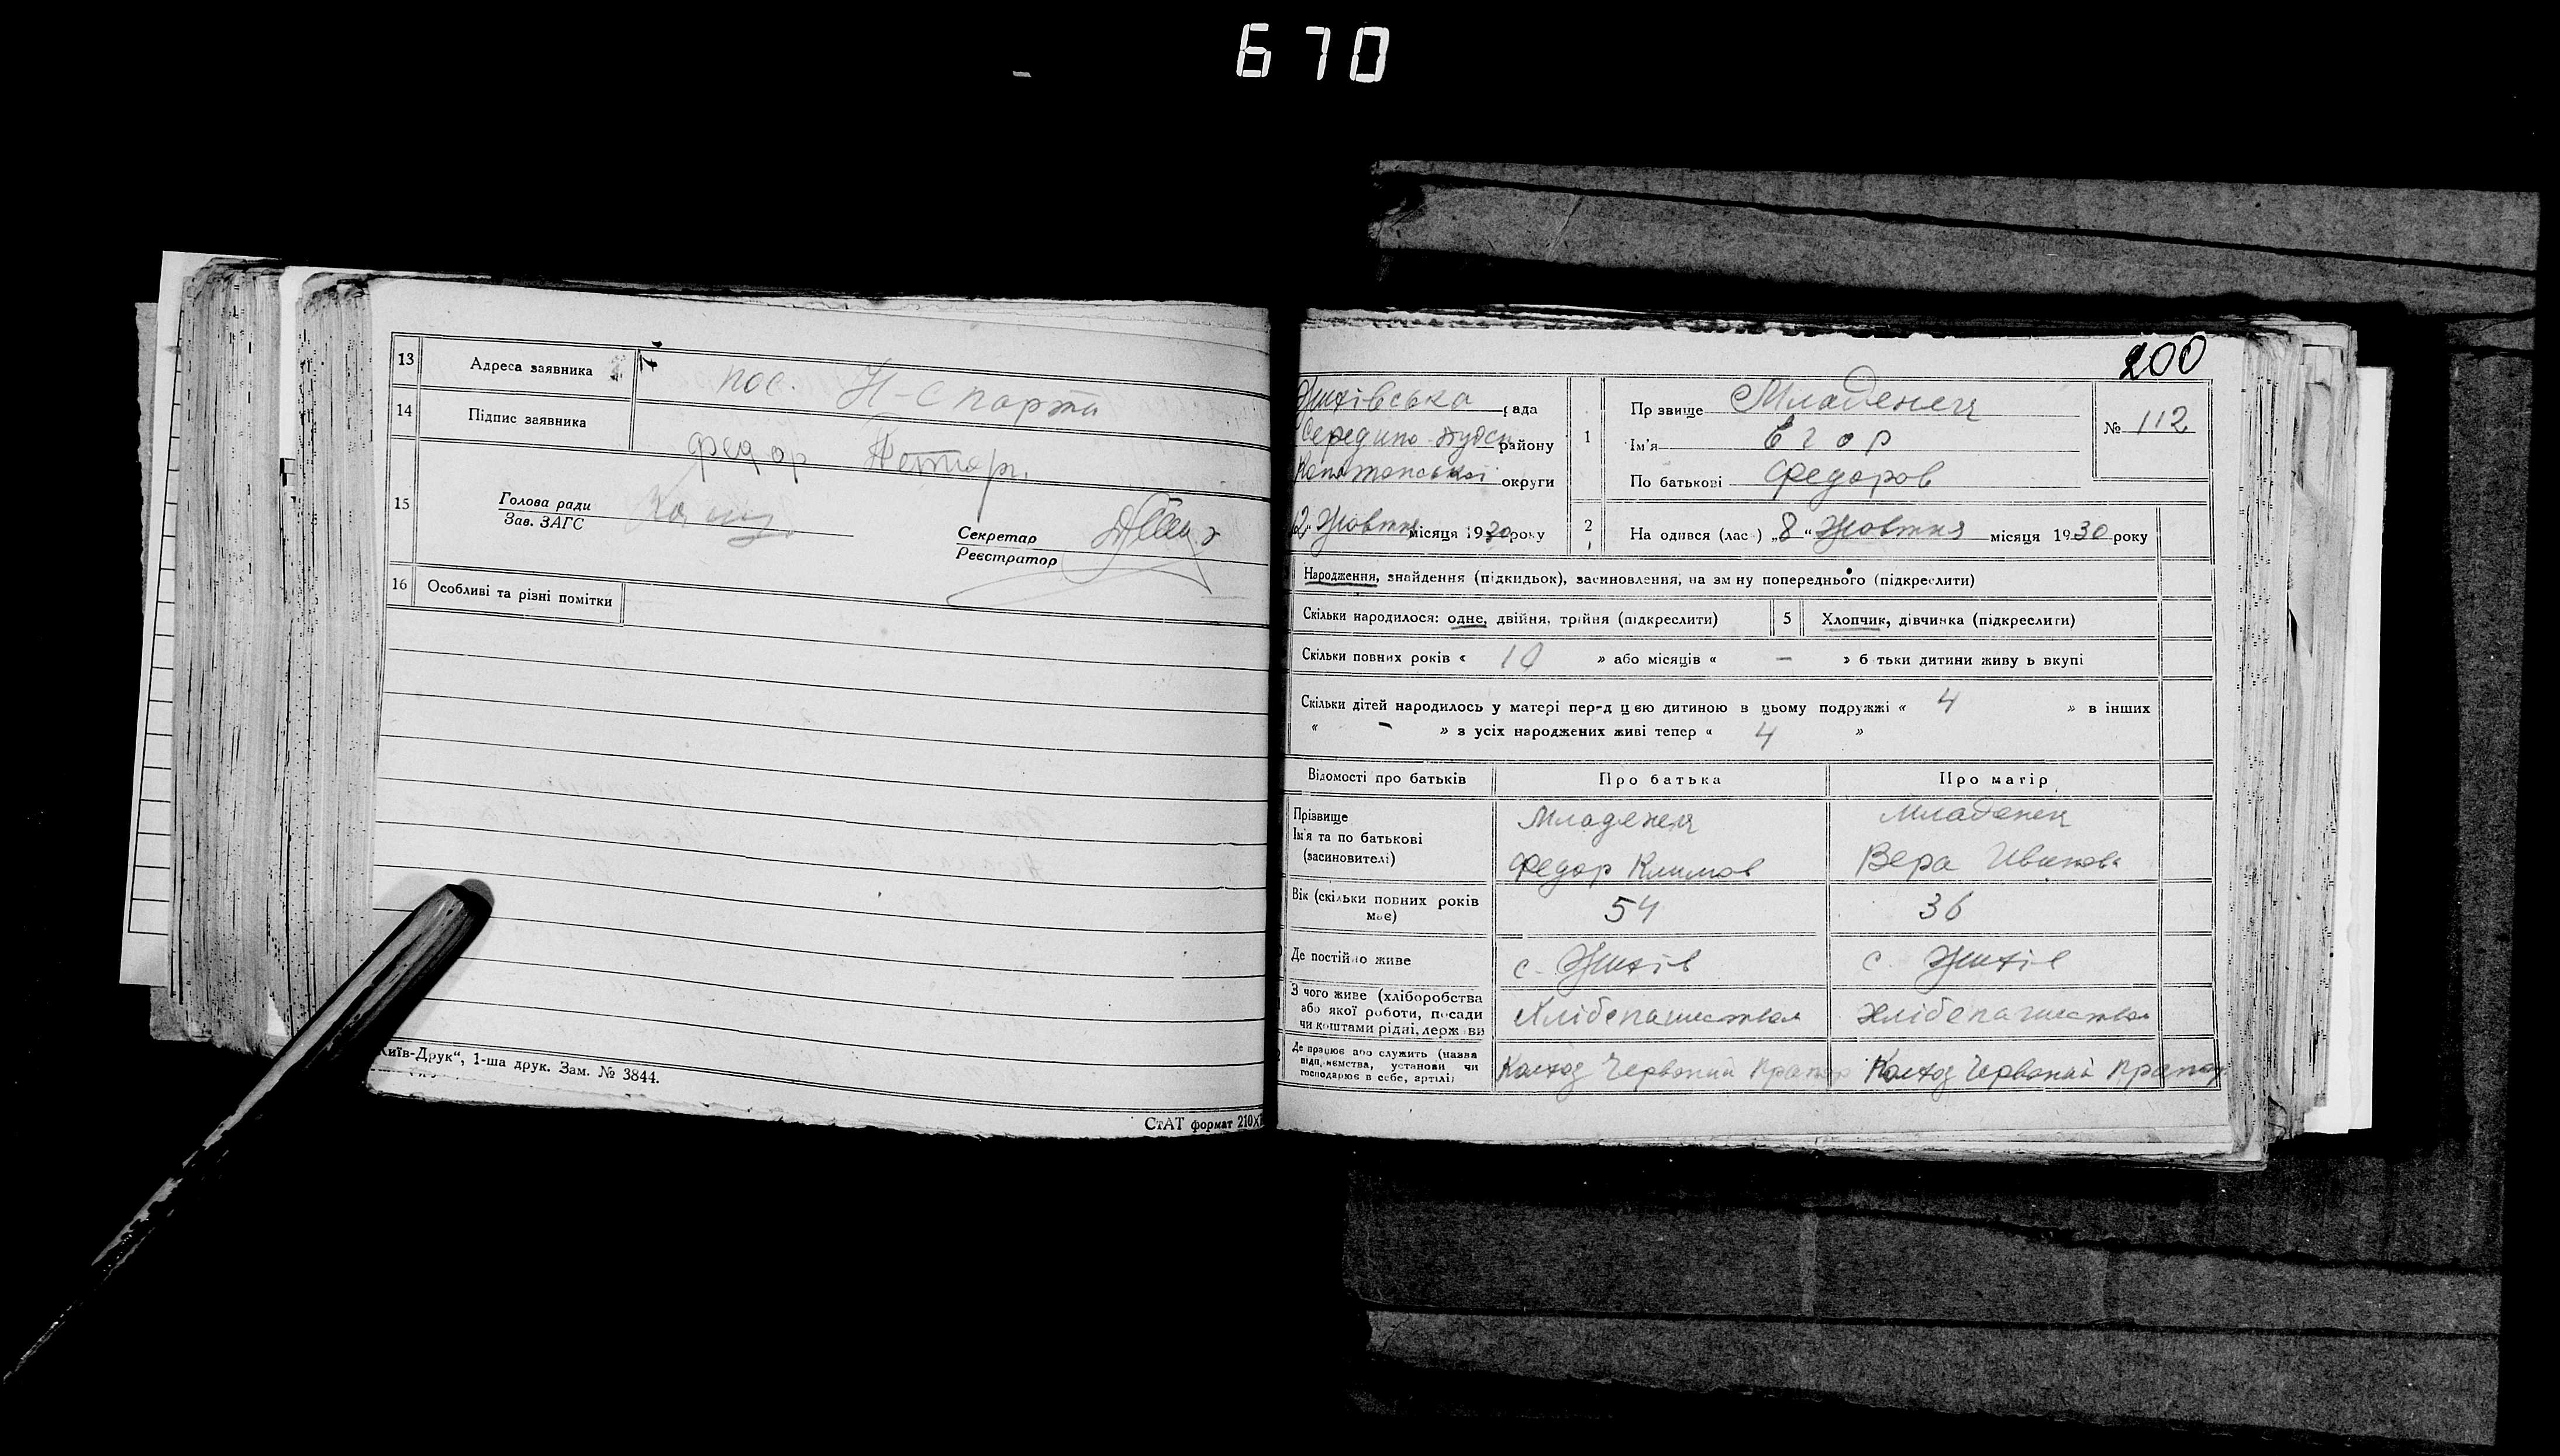 670
13 Адреса заявника пос. Н-Спарта
14 Підпис заявника Федор
15 Голова ради
Зав. ЗАГС
Секретар
Реєстратор
16 Особливі та різні помітки
Київ-Друк“, 1-ша друк. Зам. № 3844.
СтАТ формат 210×
200
Жихівська рада
Середино-Будськ району
Конотопської округи
12 Жовтня місяця 1930 року
1 Прзвище Младенец
Ім'я Егор
По батькові Федоров
№ 112
2 На одився (лас ) „8“ Жовтня місяця 1930 року
Народження, знайдення (підкидьок), засиновлення, на зм ну попереднього (підкреслити)
Скільки народилося: одне, двійня, трійня (підкреслити) 5 Хлопчик, дівчинка (підкреслити)
Скільки повних років « 10 » або місяців « – » б тьки дитини живу ь вкупі
Скільки дітей народилось у матері перед цією дитиною в цьому подружжі « 4 » в інших
« – » з усіх народжених живі тепер « 4 »
Відомості про батьків Про батька Про матір
Прізвище Младенец Младенец
Ім'я та по батькові
(засиновителі) Федор Климов Вера Иванова
Вік (скільки повних років
має) 54 36
Де постійно живе с. Жихів с. Жихів
З чого живе (хліборобства
або якої роботи, посади
чи коштами рідні, держ ви Хлібепашиством Хлібепашиством
Де працює або служить (назва
підприємства, установи чи
господарює в себе, артілі) Колхоз Червоний Прапор Колхоз Червоний Прапор